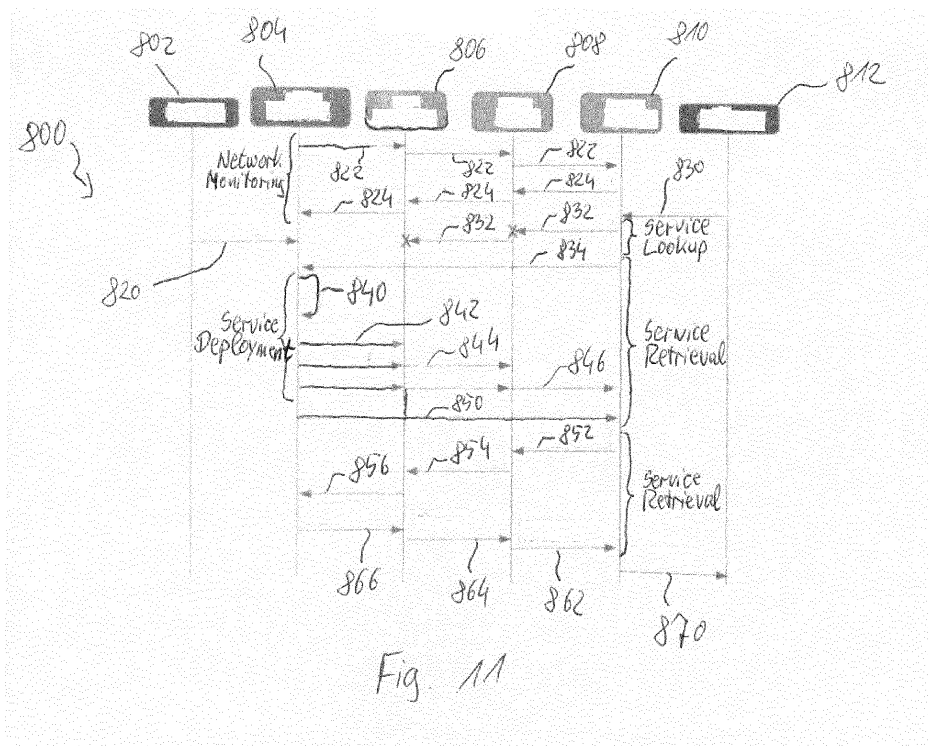 802
804
806
808
810
812
800
Network
Monitoring
822
822
822
824
824
824
830
832
832
Service
Lookup
820
834
840
Service
Deployment
842
844
846
Service
Retrieval
850
852
854
856
Service
Retrieval
866
864
862
870
Fig. 11